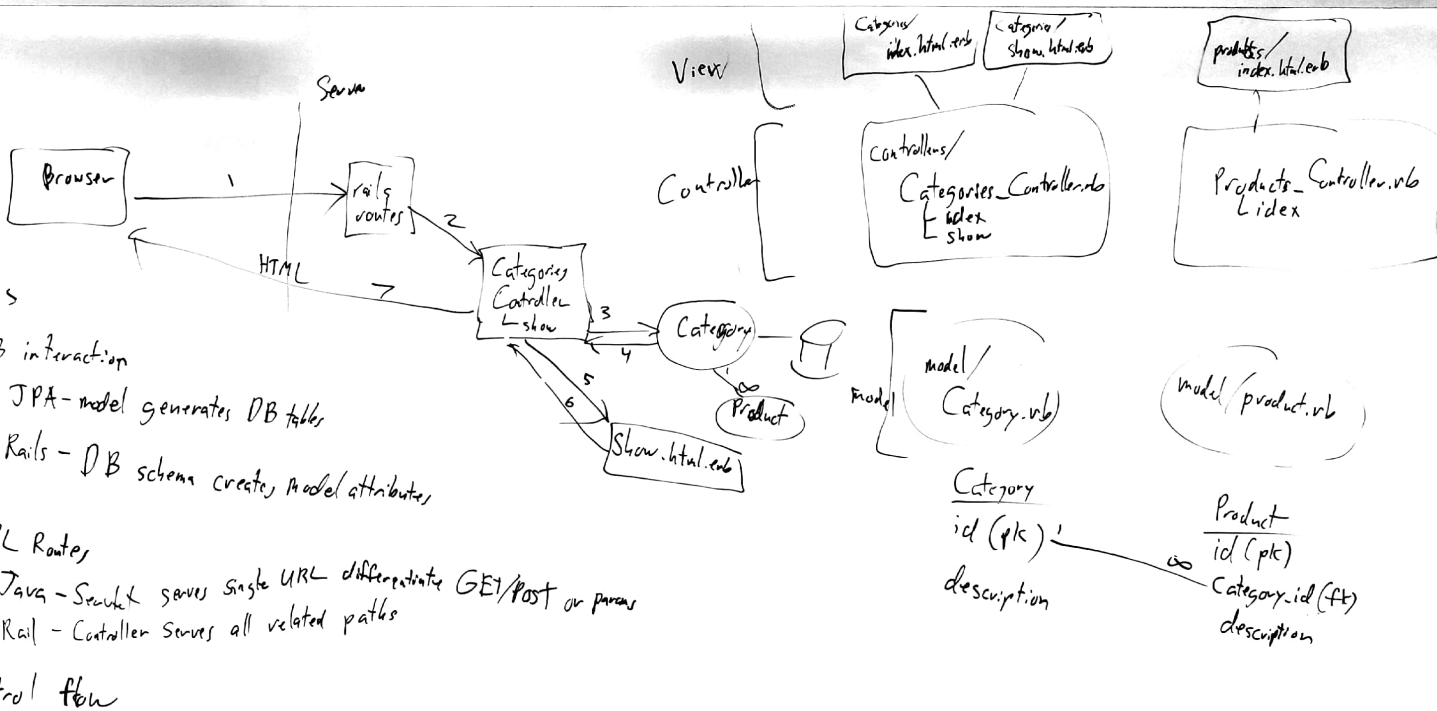 Server
Browser
1
rails
routes
2
HTML
7
Categories
Controller
show
3
4
Category
1
∞
Product
5
6
Show.html.erb
s
B interaction
JPA - model generates DB tables
Rails - DB schema creates model attributes
L Routes
Java - Servlet serves single URL differentiate GET/Post or params
Rail - Controller Serves all related paths
trol flow
View
Categories/
index.html.erb
Categories/
show.html.erb
products/
index.html.erb
Controller
Controllers/
Categories_Controller.rb
index
show
Products_Controller.rb
idex
model
model/
Category.rb
model/product.rb
Category
id (pk)
description
1
∞
Product
id (pk)
Category_id (fk)
description